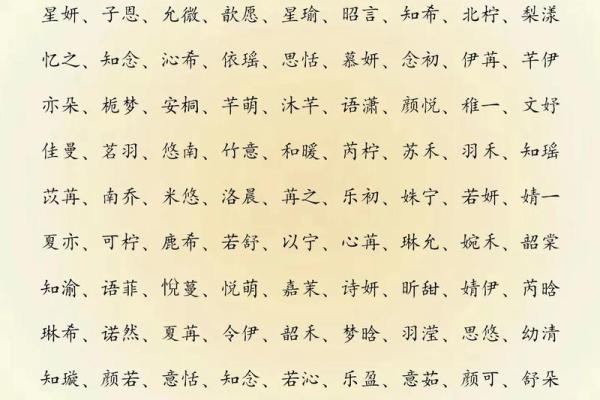 星妍、子恩、允微、歆愿、星瑜、昭言、知希、北柠、梨漾
忆之、知念、沁希、依瑶、思恬、慕妍、念初、伊苒、芊伊
亦朵、栀梦、安桐、芊萌、沐芊、语潇、颜悦、稚一、文妤
佳曼、茗羽、悠南、竹意、和暖、芮柠、苏禾、羽禾、知瑶
苡苒、南乔、米悠、洛晨、苒之、乐初、姝宁、若妍、婧一
夏亦、可柠、鹿希、若舒、以宁、心苒、琳允、婉禾、韶棠
知渝、语菲、悅蔓、悦萌、嘉茉、诗妍、昕甜、婧伊、芮晗
琳希、诺然、夏苒、令伊、韶禾、梦晗、羽滢、思悠、幼清
知璇、颜若、意恬、知念、若沁、乐盈、意茹、颜可、舒朵